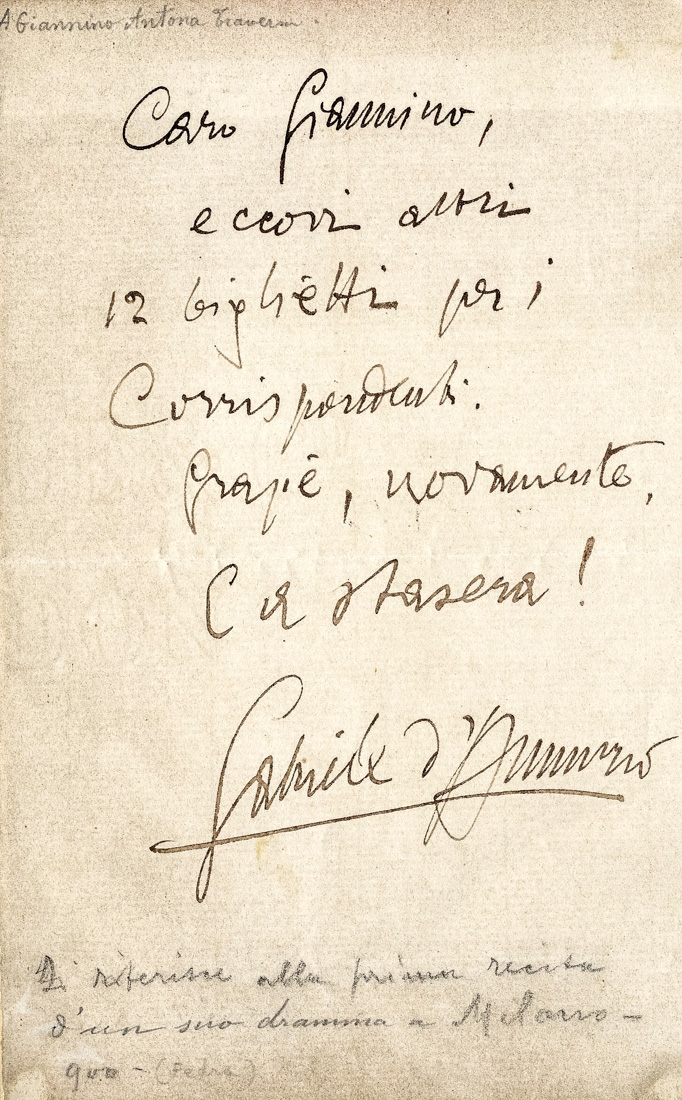 A Giannino Antona Traversi.
Caro Giannino,
eccovi altri
12 biglietti per i
Corrispondenti.
Grazie, novamente,
E a stasera!
Gabriele d'Annunzio
Si riferisce alla prima recita
d'un suo dramma a Milano -
900 - (Fedra)